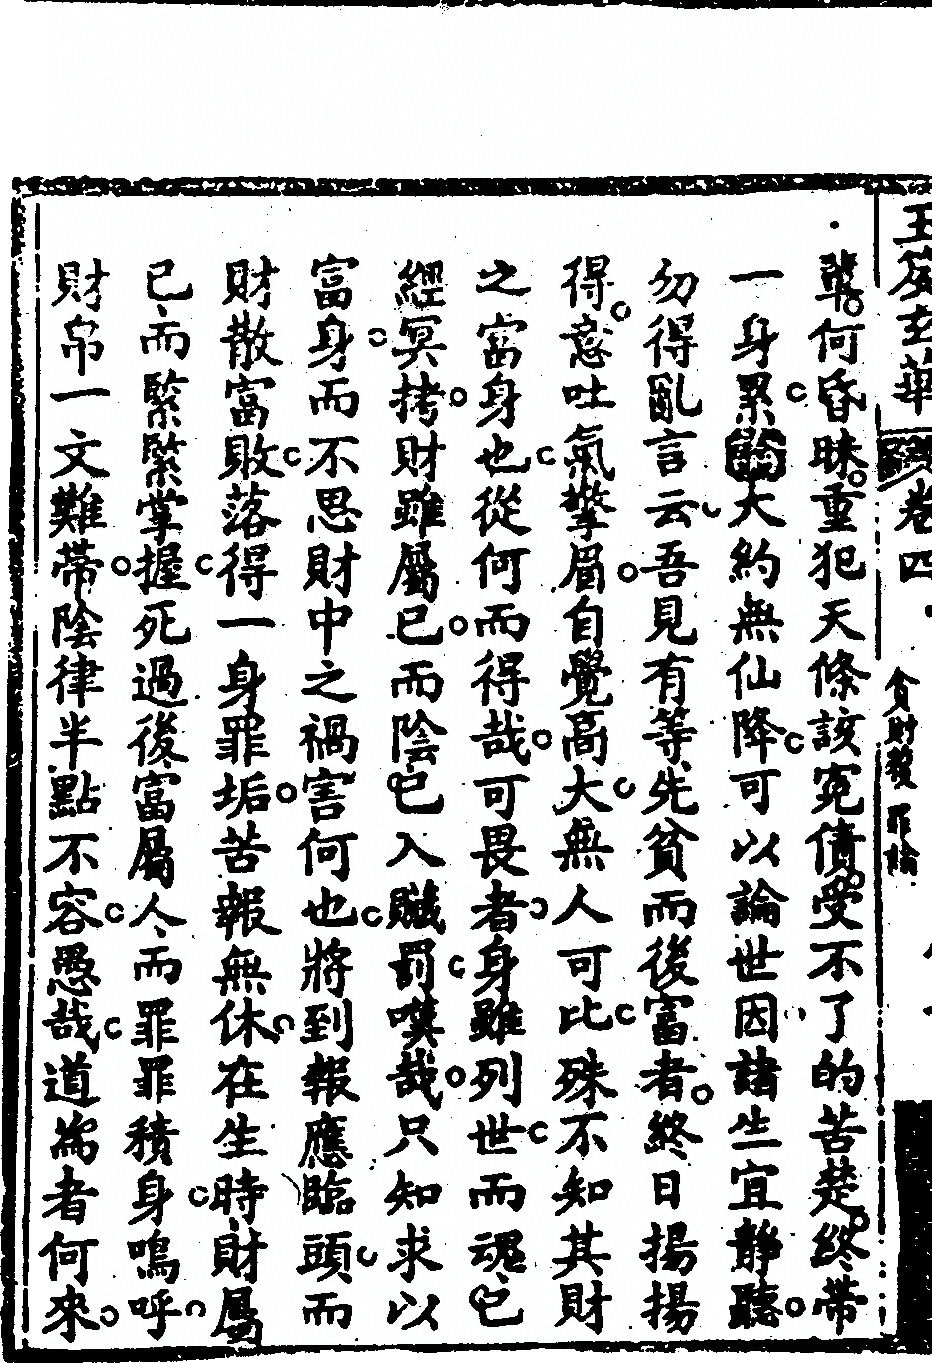 玉笈玄華
卷四
貪財殺罪論
辜何昏昧重犯天條該冤債受不了的苦楚終帶
一身累贅大約無仙降可以論世因諸生宜靜聽
勿得亂言云吾見有等先貧而後富者終日揚揚
得意吐氣擎眉自覺高大無人可比殊不知其財
之富身也從何而得哉可畏者身雖列世而魂已
經冥拷財雖屬已而陰已入贜罰嘆哉只知求以
富身而不思財中之禍害何也將到報應臨頭而
財散富敗落得一身罪垢苦報無休在生時財屬
已而緊緊掌握死過後富屬人而罪罪積身嗚呼
財帛一文難帶陰律半點不容愚哉道為者何來